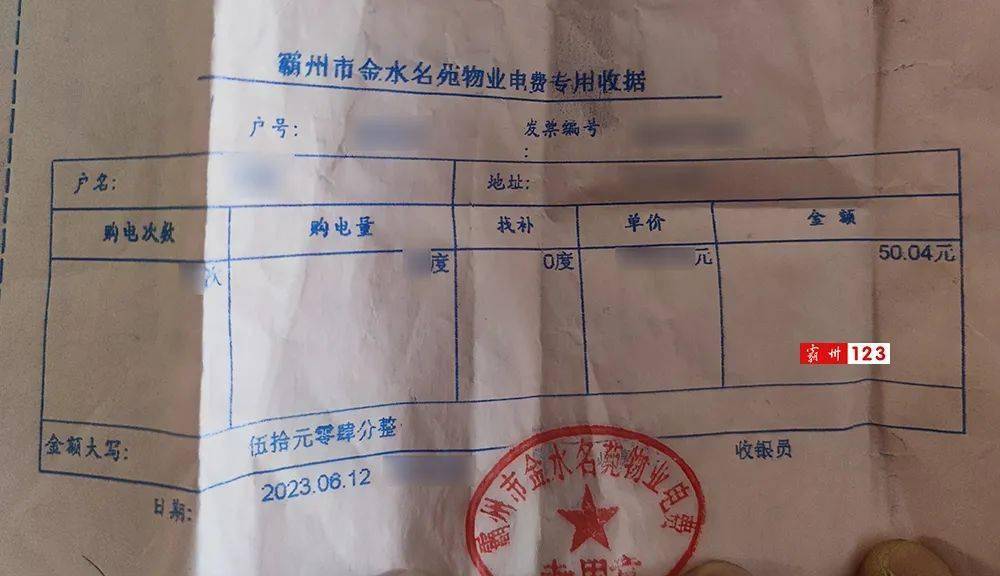 霸州市金水名苑物业电费专用收据
户号: 发票编号:
户名: 地址:
购电次数 购电量 找补 单价 金额
次 度 0度 元 50.04元
霸州123
金额大写: 伍拾元零肆分整 收银员
日期: 2023.06.12
霸州市金水名苑物业电费
专用章